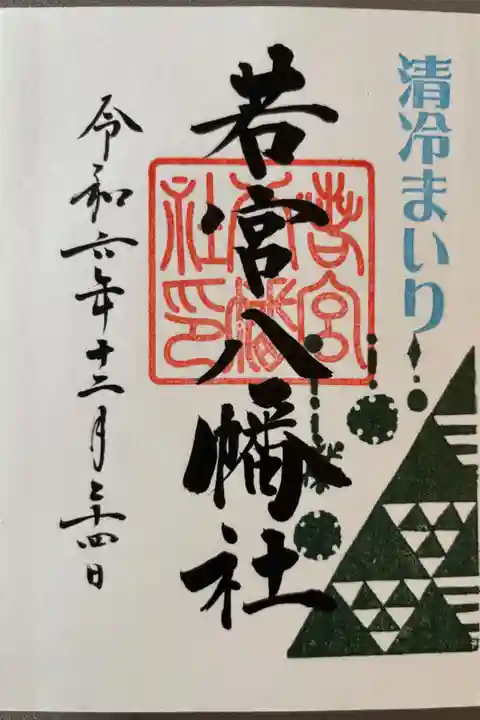 清冷まいり
若宮八幡社
若宮八幡社印
令和六年十二月二十四日